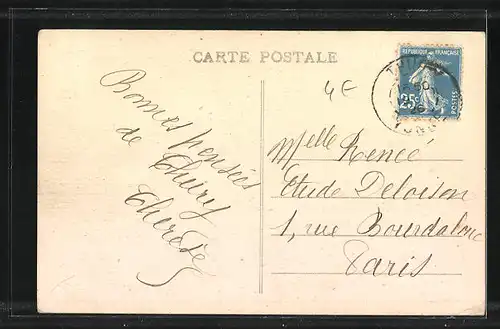 CARTE POSTALE
4 F
REPUBLIQUE FRANÇAISE
25c
POSTES
Bonnes pensées
de Thury
Thérèse
Melle Renée
Etude Deloison
1, rue Bourdaloue
Paris